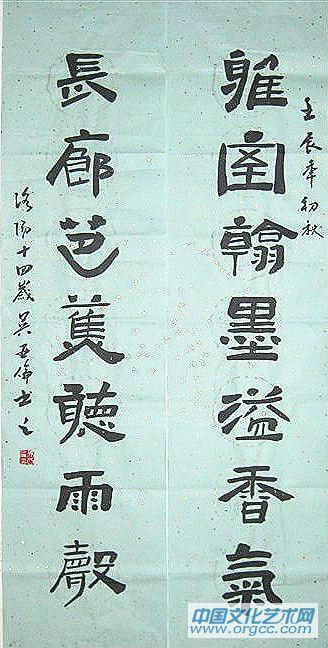 壬辰年初秋
雅室翰墨溢香氣
長廊芭蕉聽雨聲
洛陽十四歲吴亚倫书之
中国文化艺术网
www.orgcc.com